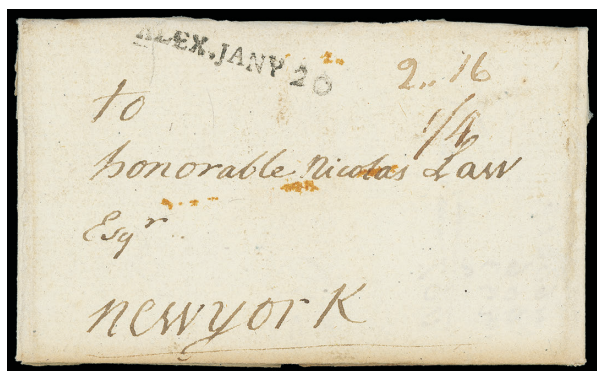 ALEX, JANY 20
2.. 16
1/4
to
honorable Nicolas Law
Esqr
newyork